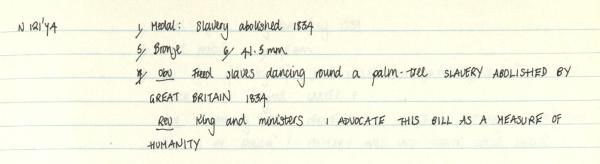 N 121'74 1, Medal: Slavery abolished 1834
5, Bronze 6, 41.5 mm
9, Obv Freed slaves dancing round a palm-tree SLAVERY ABOLISHED BY
GREAT BRITAIN 1834
Rev King and ministers I ADVOCATE THIS BILL AS A MEASURE OF
HUMANITY